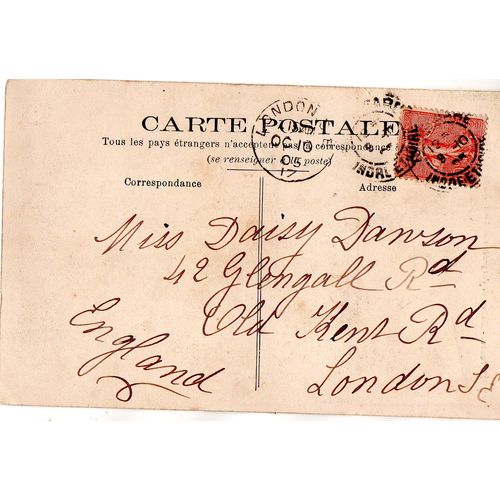 CARTE POSTALE
Tous les pays étrangers n'acceptent pas la correspondance
(se renseigner à la poste)
Correspondance
Adresse
LONDON
OC
05
17
INDRE
Miss Daisy Dawson
42 Glengall Rd
Old Kent Rd
London S E
England